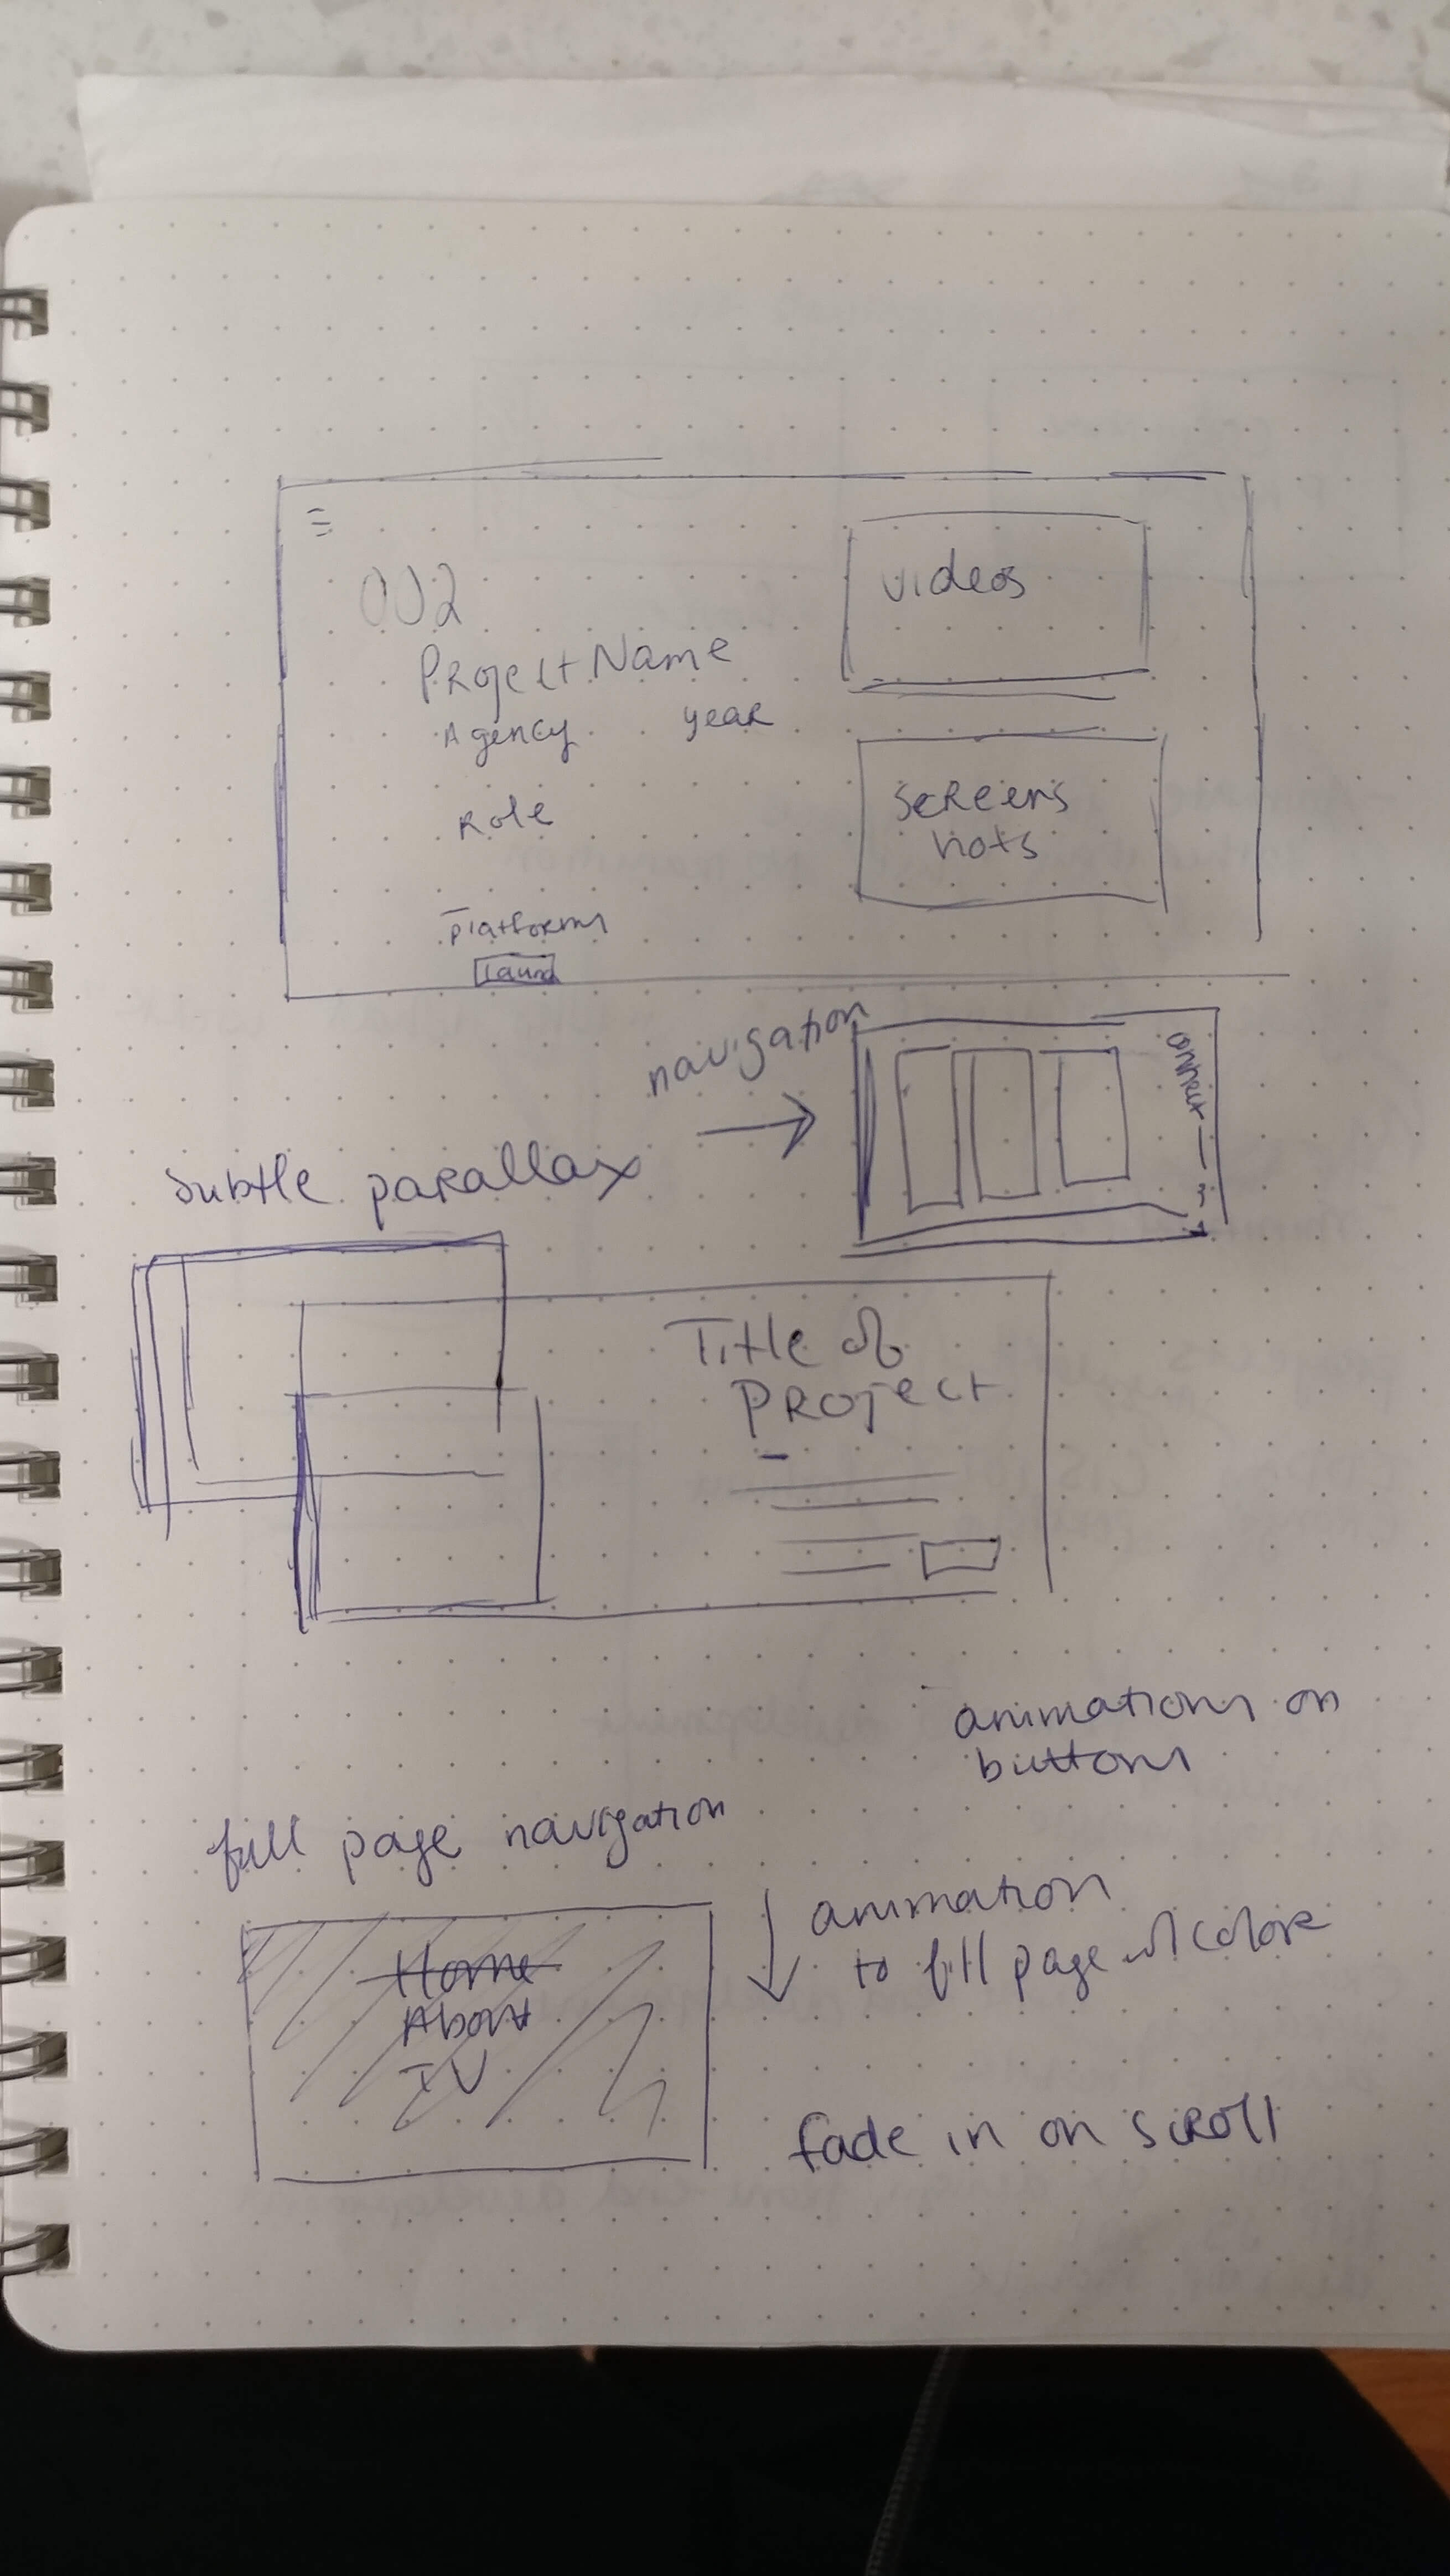 002
Project Name
Agency year
Role
Platform
videos
screens
hots
navigation
connect
subtle parallax
Title of
Project
animations on
buttons
full page navigation
Home
About
animation
to fill page w/ color
fade in on scroll